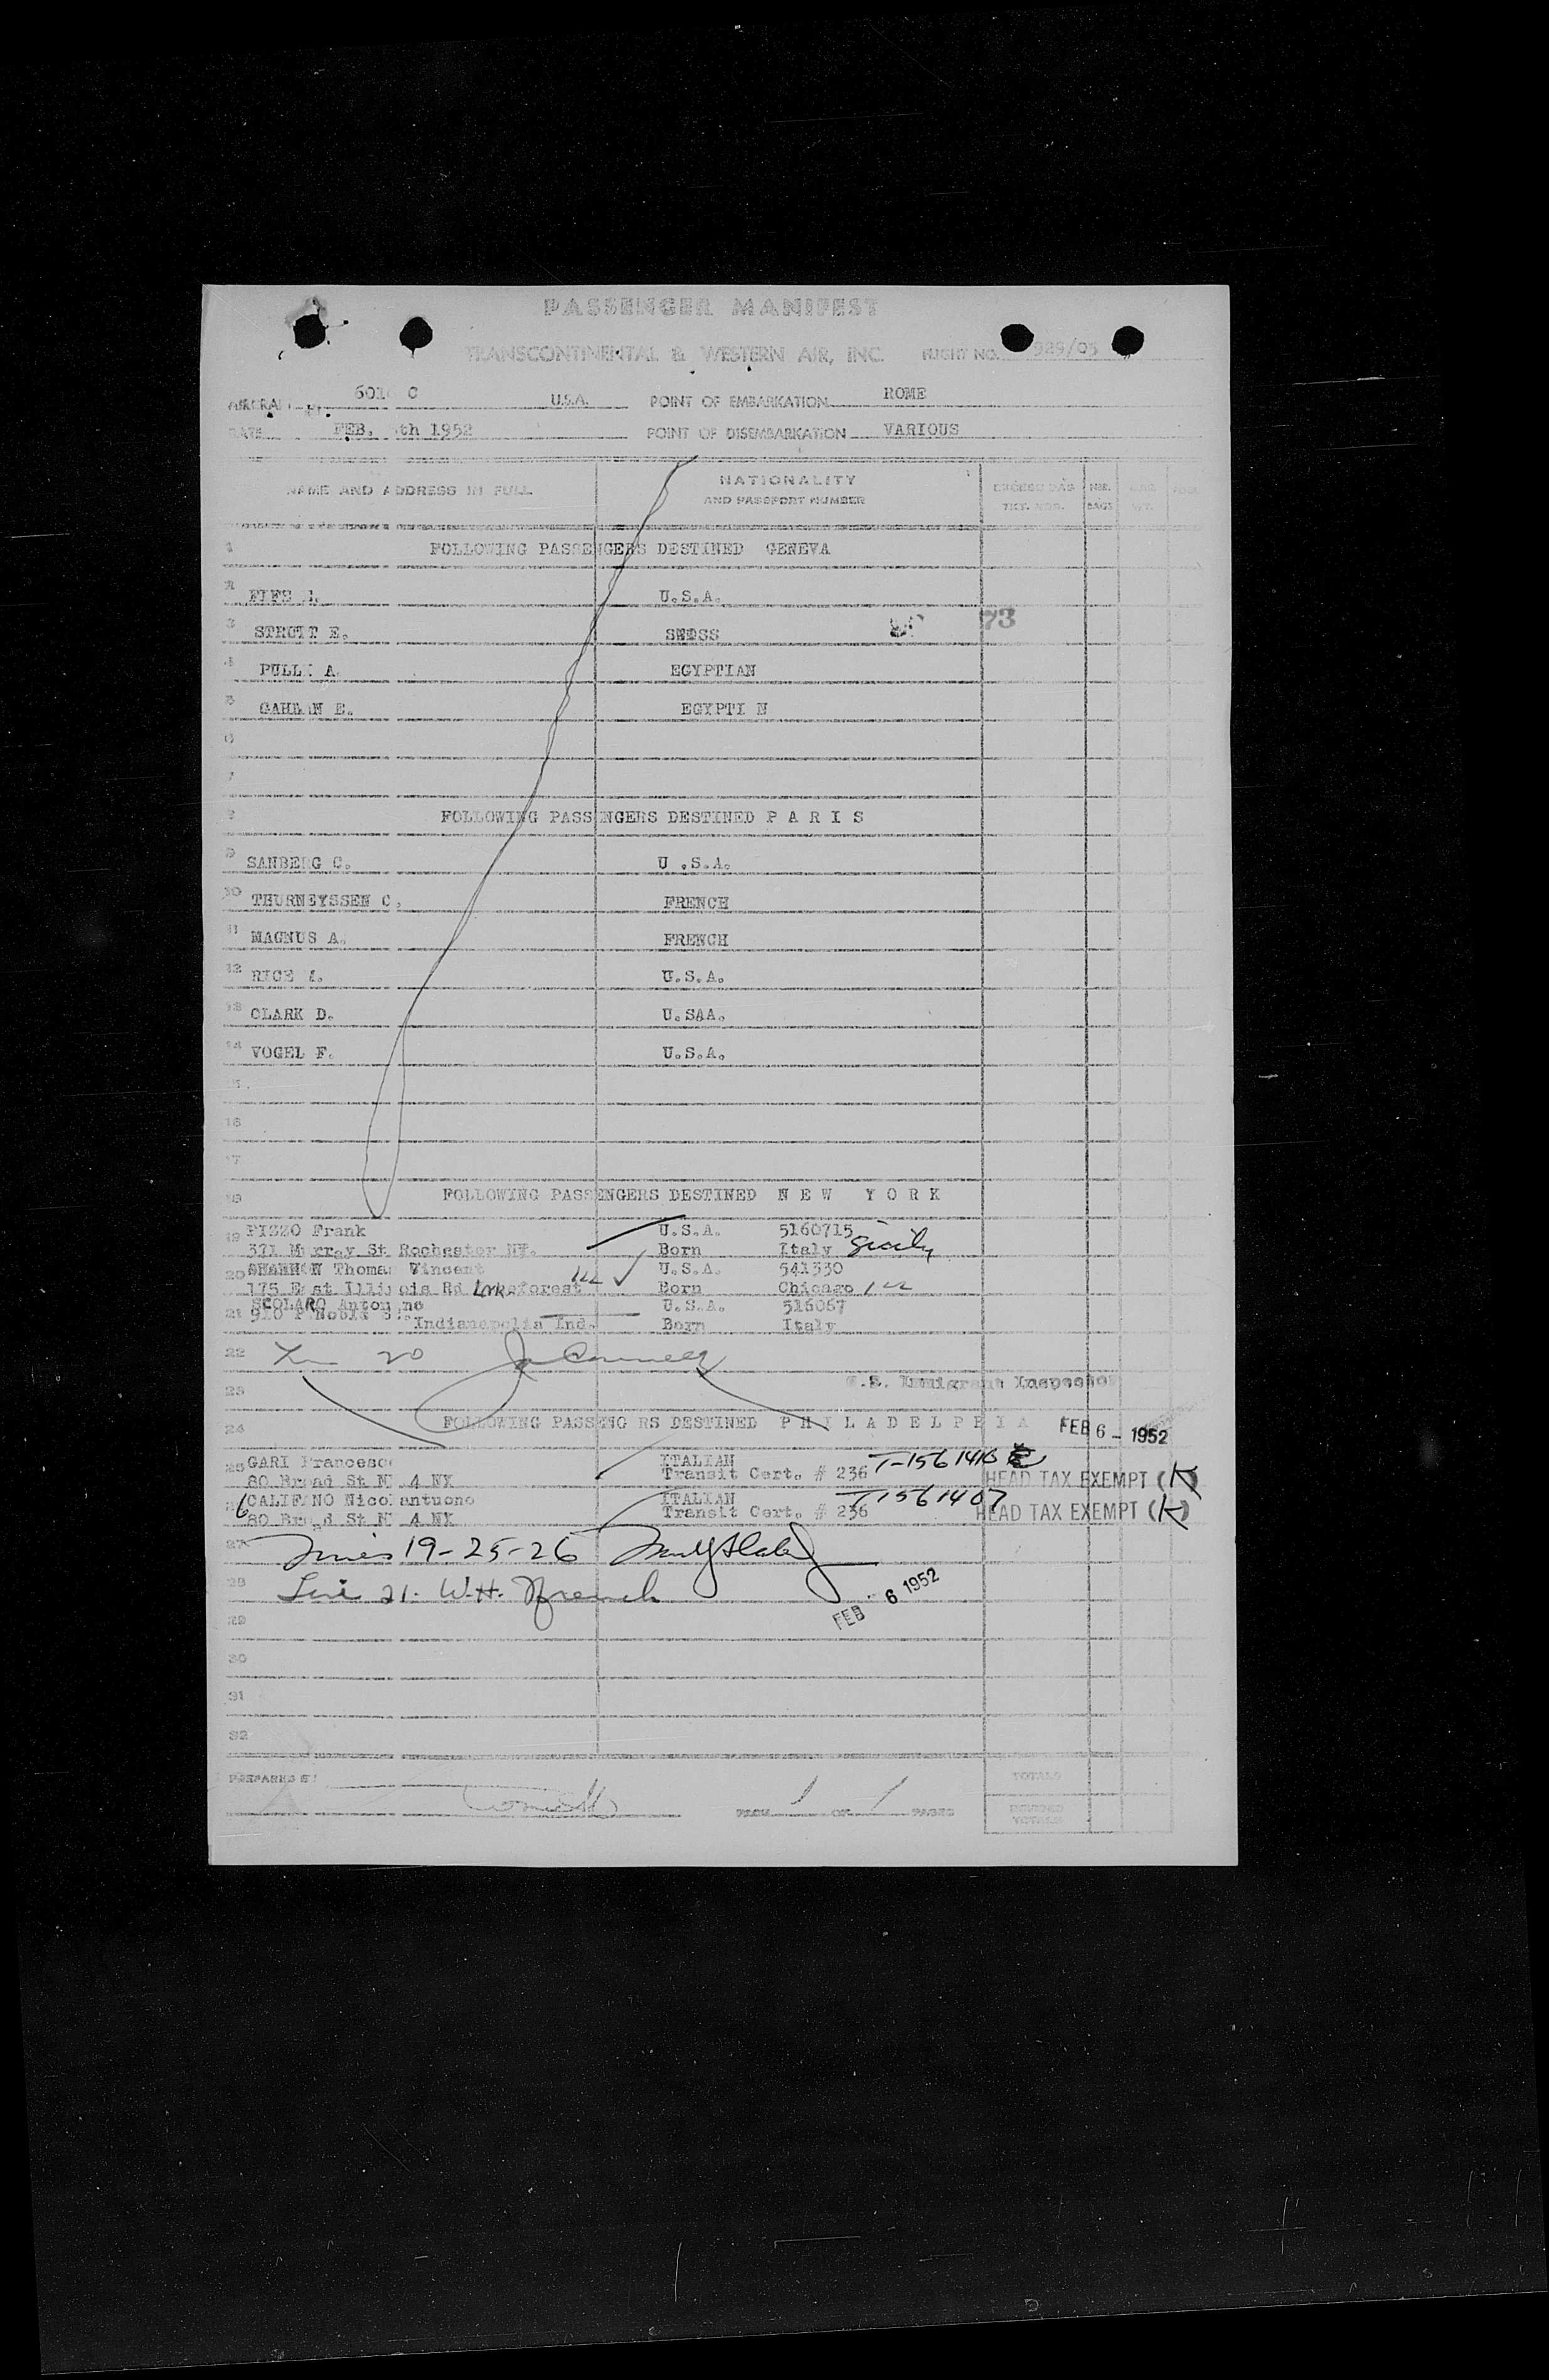 PASSENGER MANIFEST
TRANSCONTINENTAL & WESTERN AIR, INC. FLIGHT NO. 929/05
AIRCRAFT 601 C U.S.A. POINT OF EMBARKATION ROME
DATE FEB. th 1952 POINT OF DISEMBARKATION VARIOUS
NAME AND ADDRESS IN FULL NATIONALITY AND PASSPORT NUMBER EXCESS BAG TKT. NBR. NBR. BAGS
1 FOLLOWING PASSENGERS DESTINED GENEVA
2 FIFE U.S.A.
3 E. SWISS 73
4 A. EGYPTIAN
5 E. EGYPTI N
6
7
8 FOLLOWING PASSENGERS DESTINED P A R I S
9 SANBERG C. U .S.A.
10 THURNEYSSEN C. FRENCH
11 MAGNUS A. FRENCH
12 RICE U.S.A.
13 CLARK D. U.SAA.
14 VOGEL F. U.S.A.
15
16
17
18 FOLLOWING PASSENGERS DESTINED N E W Y O R K
19 Frank U.S.A. 5160715
371 Murray St Rochester NY. Born Italy Sicily
20 Thomas Vincent U.S.A. 541330
175 East Illinois Rd Lakeforest Ill Born Chicago Ill
SCOLARO Antonino U.S.A. 516067
21 910 Indianapolis Ind. Born Italy
22 20
23 U.S. Immigrant Inspector
24 FOLLOWING PASSENG RS DESTINED P H I L A D E L P H I A FEB 6 - 1952
25 GARI Francesco ITALIAN
80 Broad St NY 4 NY Transit Cert. # 236 HEAD TAX EXEMPT (K)
26 CALIFANO Nicolantuono ITALIAN T1561407
80 Broad St NY 4 NY Transit Cert. # 236 HEAD TAX EXEMPT (K)
27 Lines 19-25-26
28 Line 21. W.H. French FEB 6 1952
29
30
31
32
PREPARED BY TOTALS
PAGE 1 OF 1 PAGES